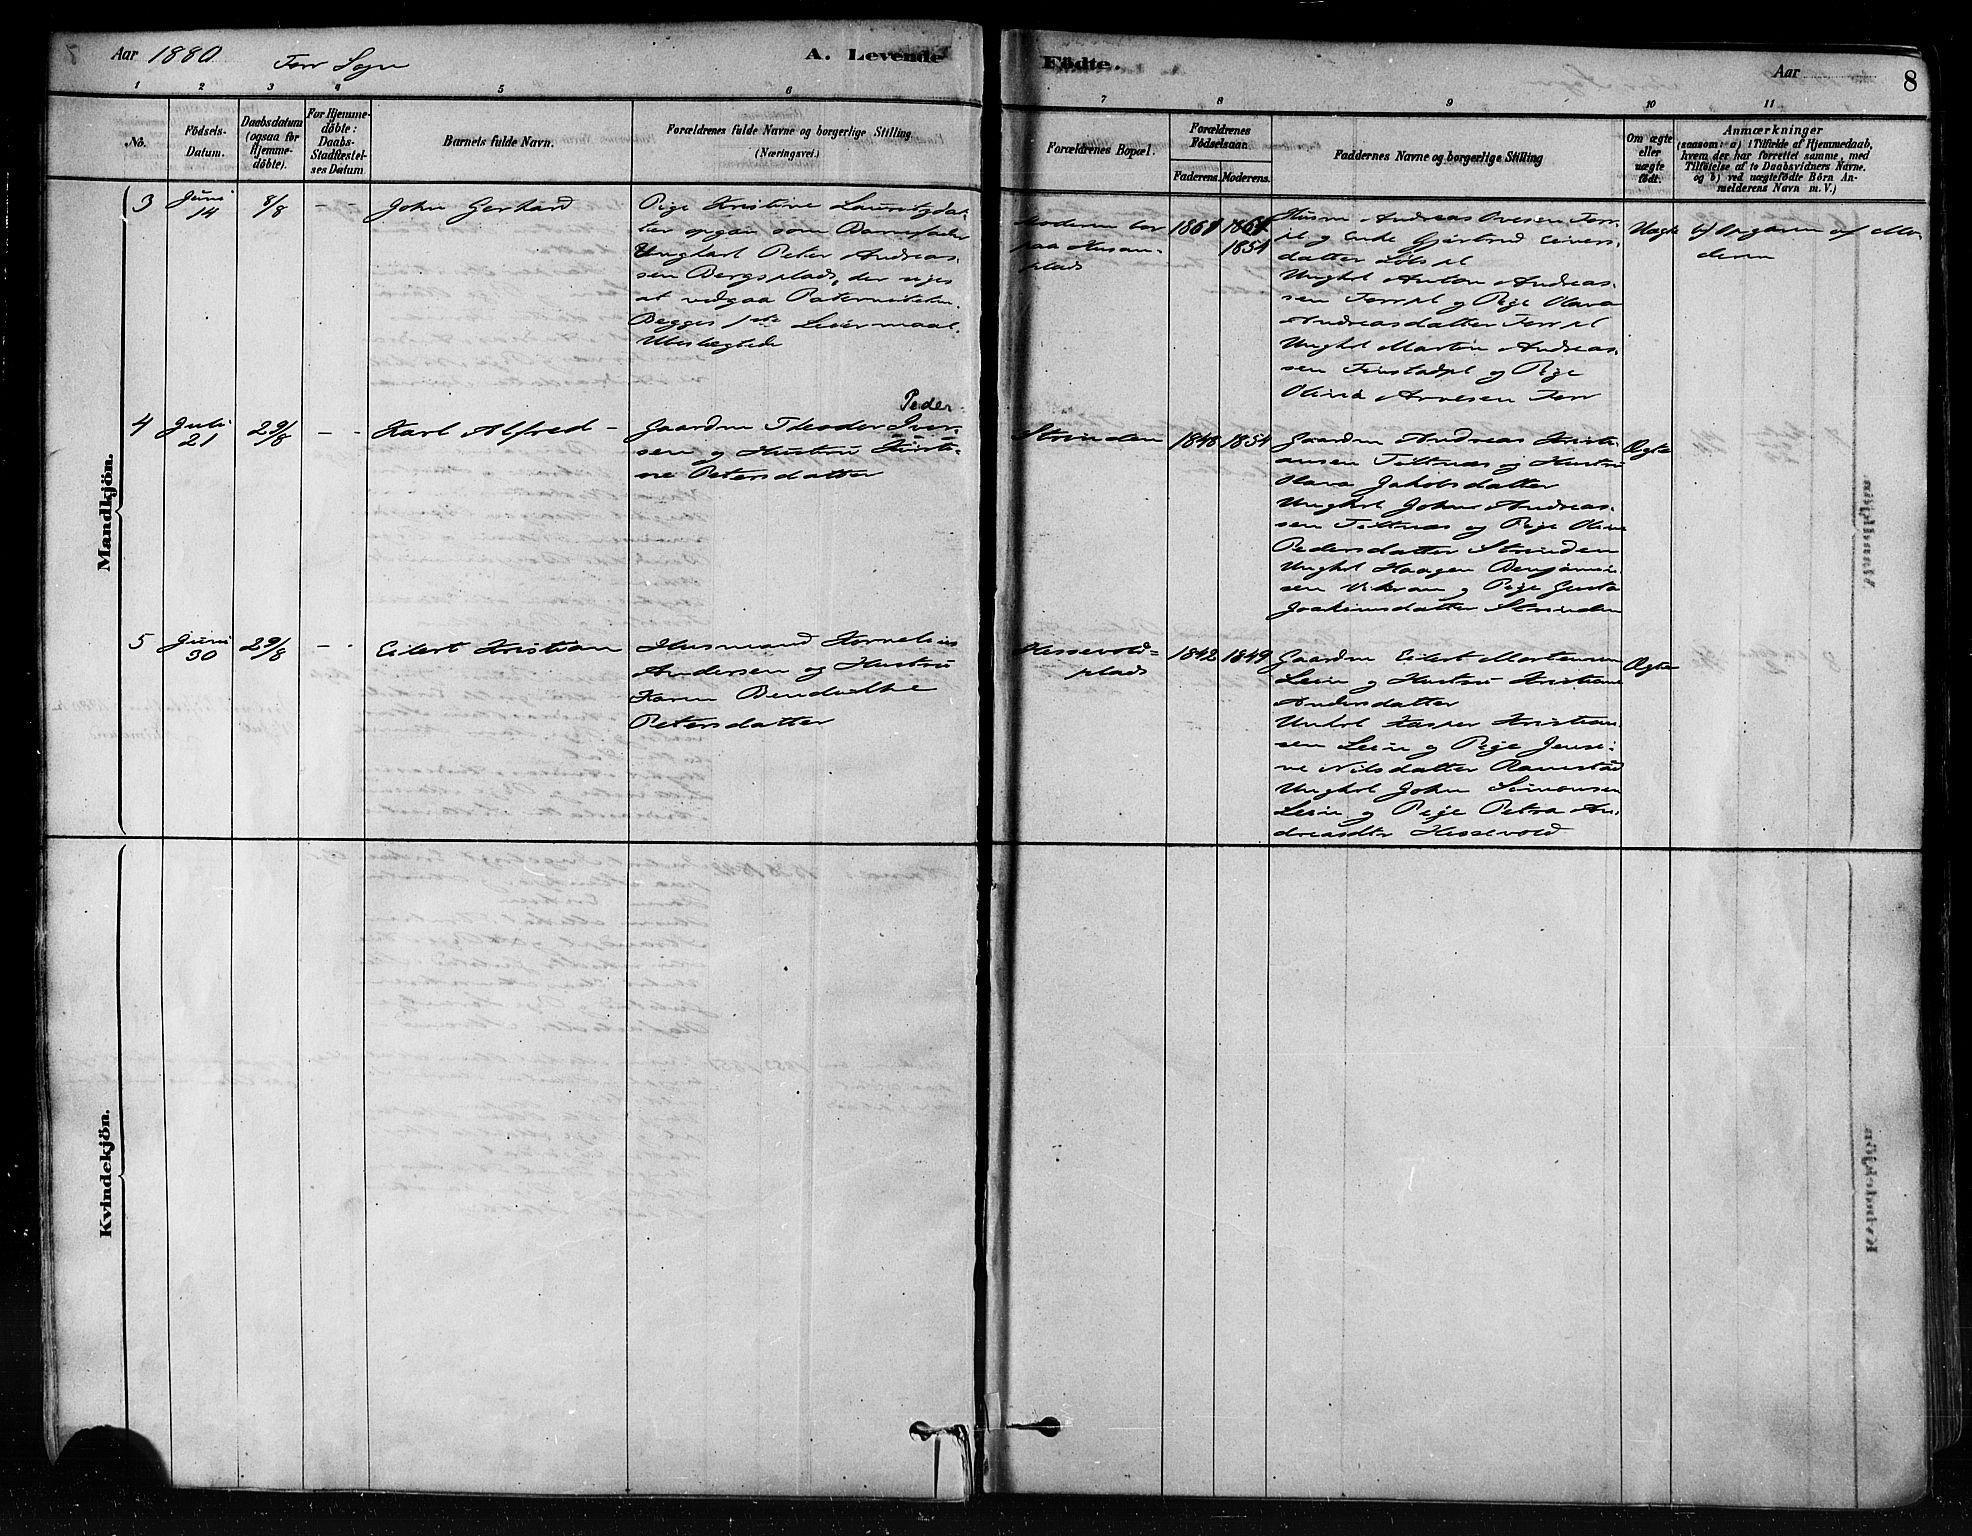 Aar 1880
Sogn
A. Levende
Födte.
Aar
8
1
2
3
4
5
6
7
8
9
10
11
No.
Födsels-
Datum.
Daabsdatum
(ogsaa for
Hjemme-
döbte).
For Hjemme-
döbte:
Daabs-
Stadfæstel-
ses Datum
Barnets fulde Navn.
Forældrenes fulde Navne og borgerlige Stilling
(Næringsvei.)
Forældrenes Bopæl.
Forældrenes
Födselsaar.
Faderens.
Moderens.
Faddernes Navne og borgerlige Stilling
Om ægte
eller
uægte
födt.
Anmærkninger
(saasom: a) i Tilfælde af Hjemmedaab,
hvem der har forrettet samme, med
Tilföielse af to Daabsvidners Navne.
og b) ved uægtefödte Börn An-
melderens Navn m. V.)
Mandkjön.
3
Juni
14
8/8
- -
John Gerhard
Pige Kristine Lauritsdat-
ter opgav som Barnefader
Ungkarl Peter Andreas-
sen Bergsplads, der siges
at vedgaa Paterniteten.
Begges 1ste Leiermaal.
Ubeslægtede
Moderen bor
paa Husan-
plads
1861
1854
Husm Andreas Ovesen
pl og Enke Gjertrud Eivers-
datter
Ungkl Anton Andreas-
sen og Pige Olava
Andreasdatter
Ungkl Martin Andreas-
sen og Pige
Uægte
b) Opgaven af Mo-
deren
4
Juli
21
29/8
- -
Karl Alfred -
Peder
Gaardm Theodor Iver-
sen og Hustru Kirsti-
ne Petersdatter
Strinden
1848
1854
Gaardm Andreas Kristi-
ansen Tiltnæs og Hustru
Olava Jakobsdatter
Ungkl Johan Andreas-
sen Tiltnæs og Pige Oline
Pedersdatter Strinden
Ungkl Haagen Benjamin-
sen og Pige Gusta
Joakimsdatter Strinden
Ægte
5
Juni
30
29/8
- -
Eilert Kristian
Husmand Kornelius
Andersen og Hustru
Karen Bendikke
Petersdatter
Hessevold=
plads
1842
1849
Gaardm Eilert Mortensen
Lein og Hustru Kristiane
Andersdatter
Unkl Kasper Kristian-
sen Lein og Pige Jensi-
ne Nilsdatter
Ungkl John Simonsen
Lein og Pige Petra An-
dreasdtr Hessevold
Ægte
Kvindekjön.